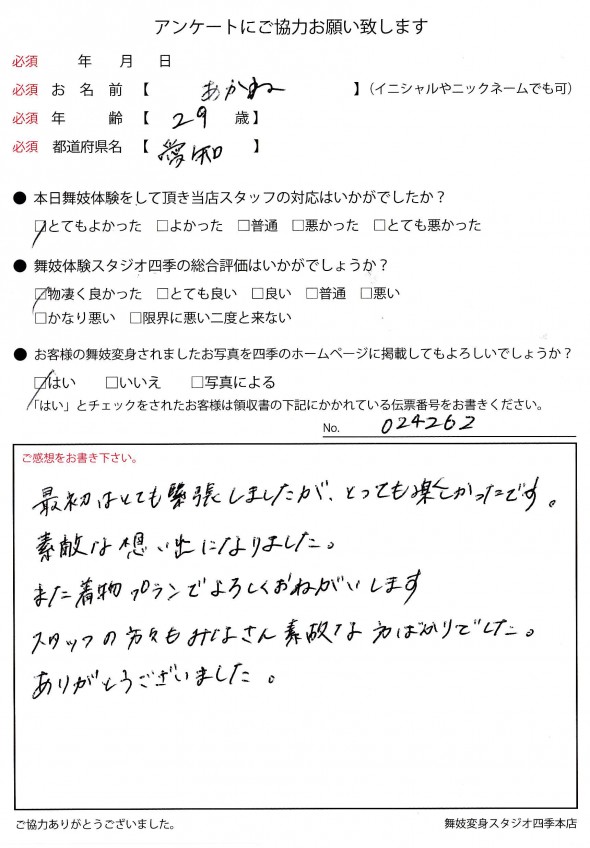 アンケートにご協力お願い致します
必須 年 月 日
必須 お名前【 あかね 】(イニシャルやニックネームでも可)
必須 年 齢【 29 歳】
必須 都道府県名【 愛知 】
● 本日舞妓体験をして頂き当店スタッフの対応はいかがでしたか？
□とてもよかった □よかった □普通 □悪かった □とても悪かった
● 舞妓体験スタジオ四季の総合評価はいかがでしょうか？
□物凄く良かった □とても良い □良い □普通 □悪い
□かなり悪い □限界に悪い二度と来ない
● お客様の舞妓変身されましたお写真を四季のホームページに掲載してもよろしいでしょうか？
□はい □いいえ □写真による
「はい」とチェックをされたお客様は領収書の下記にかかれている伝票番号をお書きください。
No. 024262
ご感想をお書き下さい。
最初はとても緊張しましたが、とっても楽しかったです。
素敵な想い出になりました。
また着物プランでよろしくおねがいします
スタッフの方々もみなさん素敵な方ばかりでした。
ありがとうございました。
ご協力ありがとうございました。
舞妓変身スタジオ四季本店